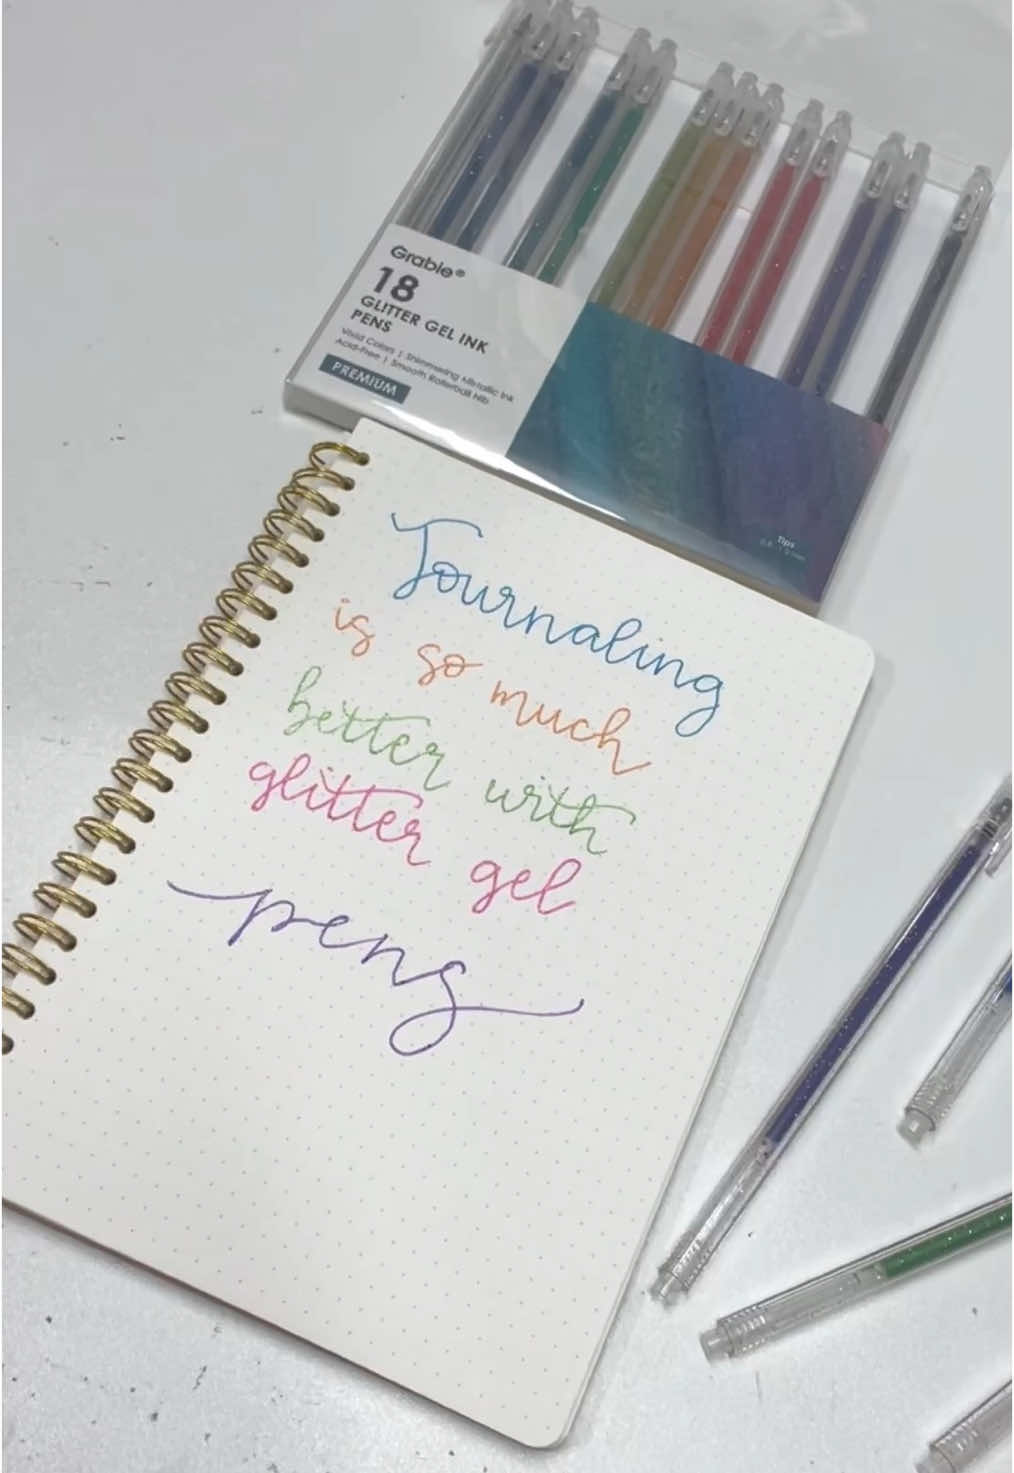 Grabie®
18
GLITTER GEL INK
PENS
Vivid Colors | Shimmering Metallic Ink
Acid-Free | Smooth Rollerball Nib
PREMIUM
Tips
Journaling
is so much
better with
glitter gel
pens